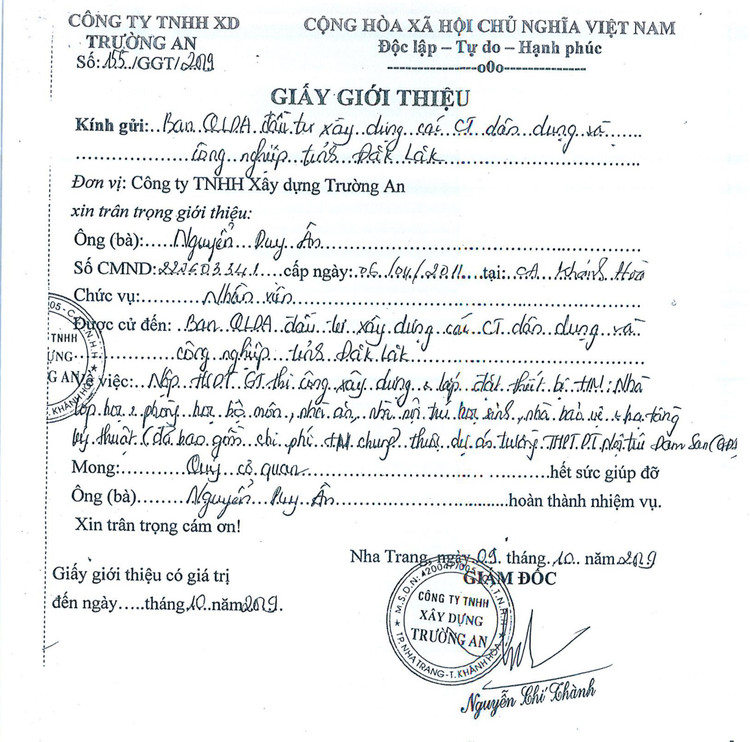 CÔNG TY TNHH XD
TRƯỜNG AN
Số: 155./GGT/2019
CỘNG HÒA XÃ HỘI CHỦ NGHĨA VIỆT NAM
Độc lập – Tự do – Hạnh phúc
----------------o0o---------------
GIẤY GIỚI THIỆU
Kính gửi: Ban QLDA đầu tư xây dựng các CT dân dụng và
công nghiệp tỉnh Đắk Lắk
Đơn vị: Công ty TNHH Xây dựng Trường An
xin trân trọng giới thiệu:
Ông (bà): Nguyễn Duy Ân
Số CMND: 225603341 cấp ngày: 06/04/2011 tại: CA Khánh Hoà
Chức vụ: Nhân viên
Được cử đến: Ban QLDA đầu tư xây dựng các CT dân dụng và
công nghiệp tỉnh Đắk Lắk
Về việc: Nộp HSDT GT thi công xây dựng & lắp đặt thiết bị TM: Nhà
lớp học & phòng học bộ môn, nhà ăn, nhà nội trú học sinh, nhà bảo vệ & hạ tầng
kỹ thuật (đã bao gồm chi phí HM chung) thuộc dự án trường THPT DT Nội trú Đam San
Mong: Quý cơ quan hết sức giúp đỡ
Ông (bà) Nguyễn Duy Ân hoàn thành nhiệm vụ.
Xin trân trọng cám ơn!
Nha Trang, ngày 09 tháng 10 năm 2019
Giấy giới thiệu có giá trị
đến ngày.....tháng 10 năm 2019.
GIÁM ĐỐC
M.S.D.N: C.T.T.N.H.H
CÔNG TY TNHH
XÂY DỰNG
TRƯỜNG AN
TP.NHA TRANG-T.KHÁNH HÒA
Nguyễn Chí Thành